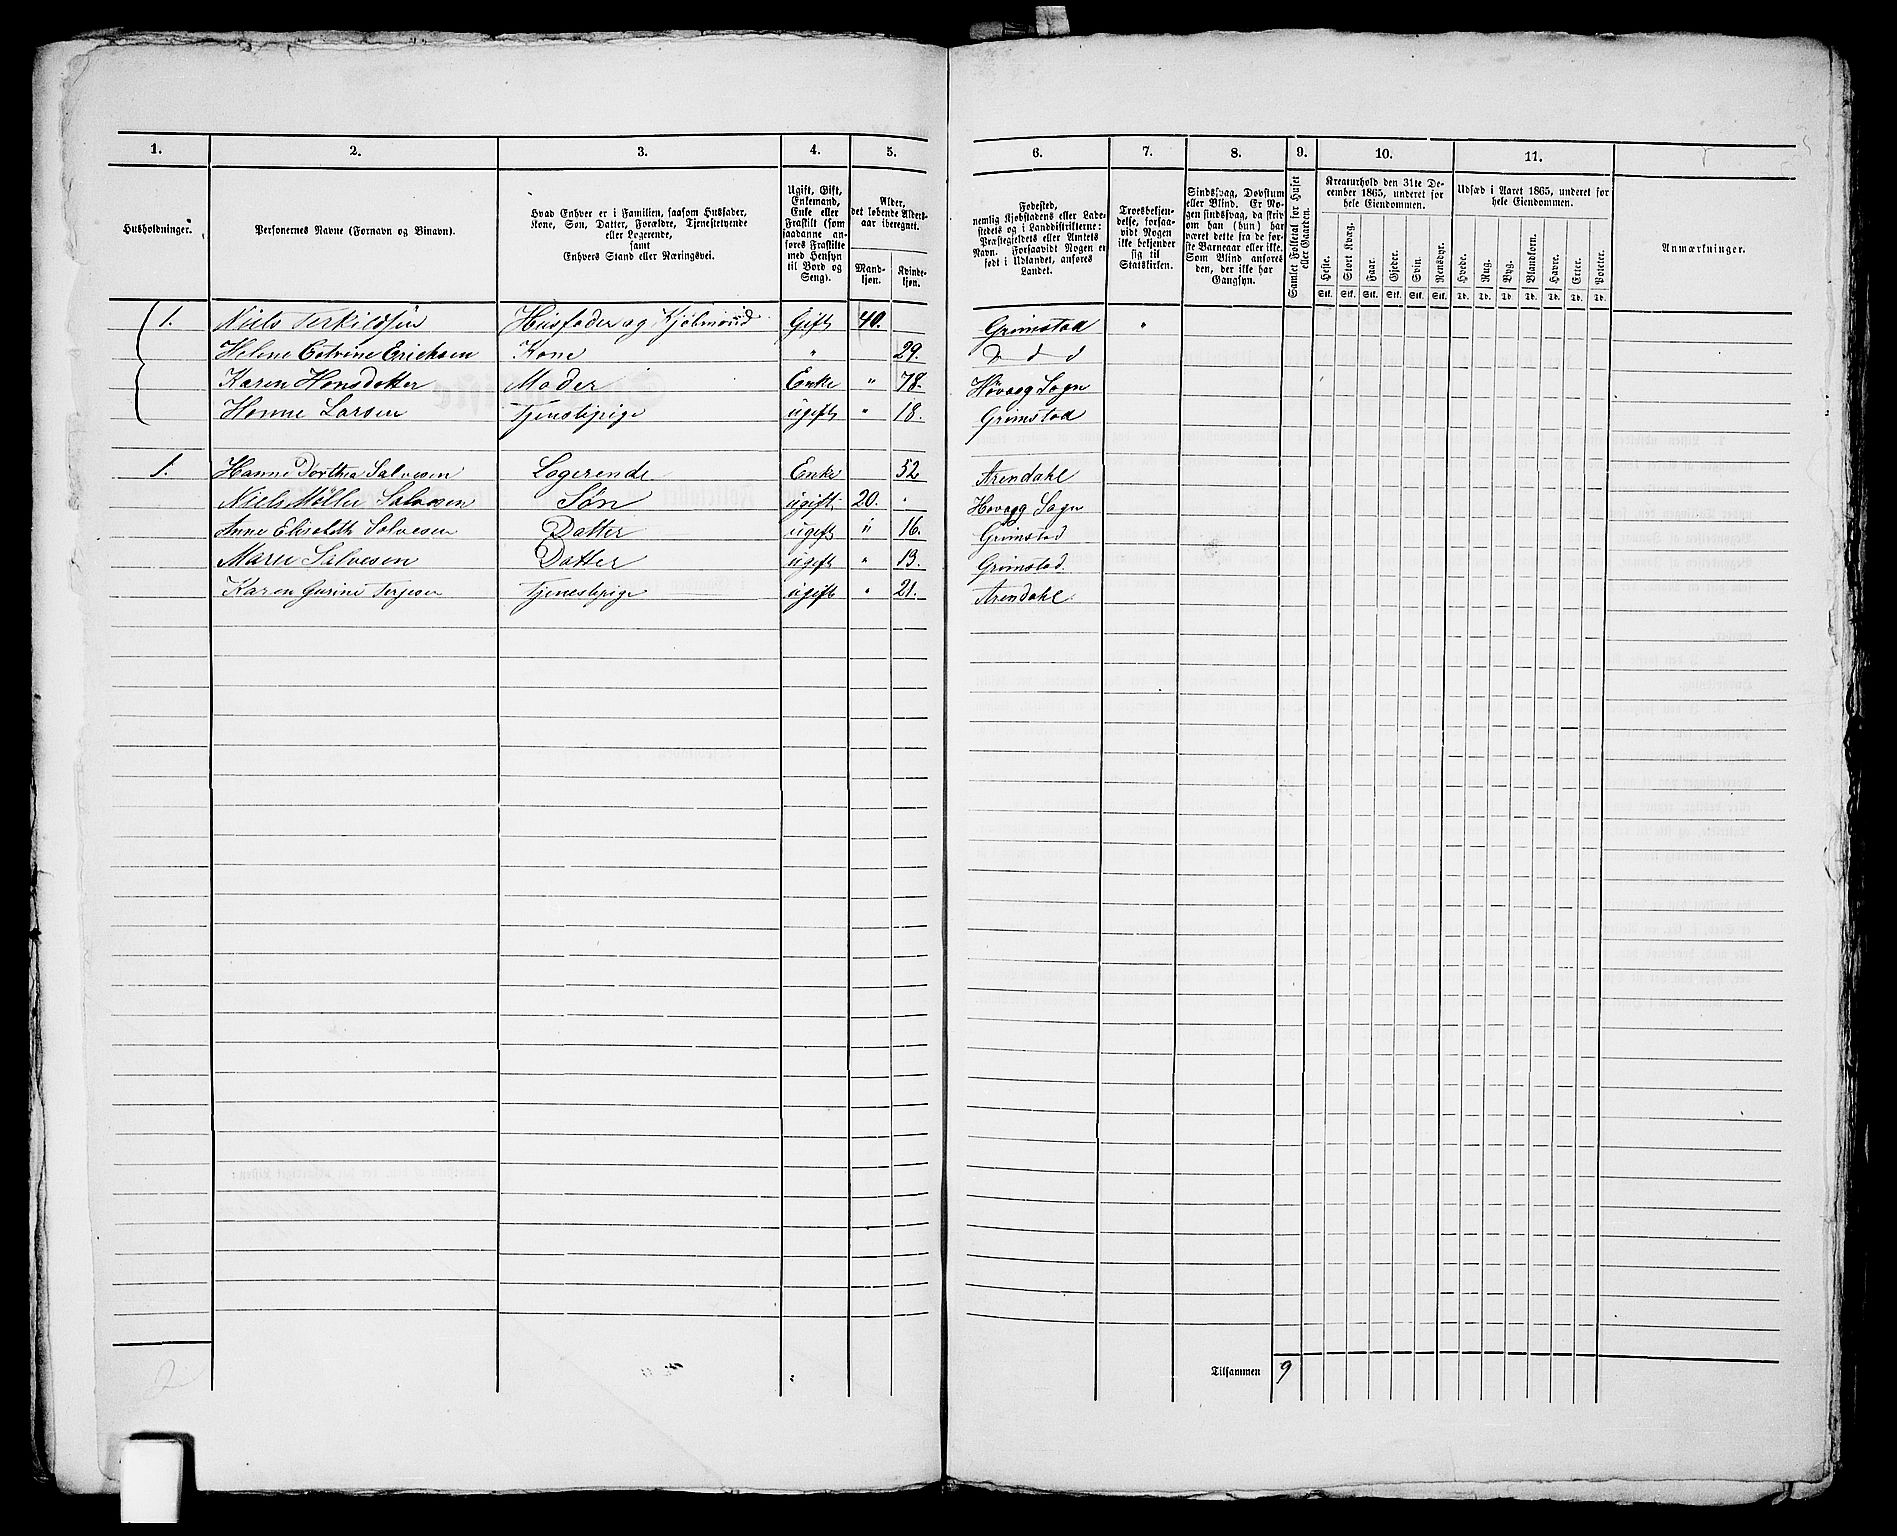 1. 2. 3. 4. 5. 6. 7. 8. 9. 10. 11.
Husholdninger.
Personernes Navne (Fornavn og Binavn).
Hvad Enhver er i Familien, saasom Husfader,
Kone, Søn, Datter, Forældre, Tjenestetyende
eller Logerende,
samt
Enhvers Stand eller Næringsvei.
Ugift, Gift,
Enkemand,
Enke eller
Fraskilt (som
saadanne an-
føres Fraskilte
med Hensyn
til Bord og
Seng).
Alder,
det løbende Alders-
aar iberegnet.
Mand-
kjøn.
Kvinde-
kjøn.
Fødested,
nemlig Kjøbstadens eller Lade-
stedets og i Landdistrikterne:
Præstegjeldets eller Amtets
Navn. Forsaavidt Nogen er
født i Udlandet, anføres
Landet.
Troesbekjen-
delse, forsaa-
vidt Nogen
ikke bekjender
sig til
Statskirken.
Sindssvag, Døvstum
eller Blind. Er No-
gen sindssvag, da skriv
om han (hun) har
været dette fra de før-
ste Barneaar eller ikke.
Som Blind anføres
den, der ikke har
Gangsyn.
Samlet Folketal for Huset
eller Gaarden.
Kreaturhold den 31te De-
cember 1865, underet for
hele Eiendommen.
Heste. Stort Kvæg. Faar. Gjeder. Svin. Rensdyr.
Stk. Stk. Stk. Stk. Stk. Stk.
Udsæd i Aaret 1865, underet for
hele Eiendommen.
Hvede. Rug. Byg. Blandkorn. Havre. Erter. Poteter.
Td. Td. Td. Td. Td. Td. Td.
Anmærkninger.
1. Niels Terkildsen Husfader og Kjøbmand Gift 40. Grimstad "
Helene Catrine Ericksen Kone " 29. D d d
Karen Hansdatter Moder Enke " 78. Høvaag Sogn
Hanne Larsen Tjenestepige ugift " 18. Grimstad
1. Hanne Dorthea Salvesen Logerende Enke 52 Arendahl
Niels Møller Salvesen Søn ugift 20. Høvaag Sogn
Anne Elisabeth Salvesen Datter ugift " 16. Grimstad
Marie Salvesen Datter ugift " 13. Grimstad.
Karen Gurine Terjesen Tjenestepige ugift " 21. Arendahl.
2
Tilsammen 9